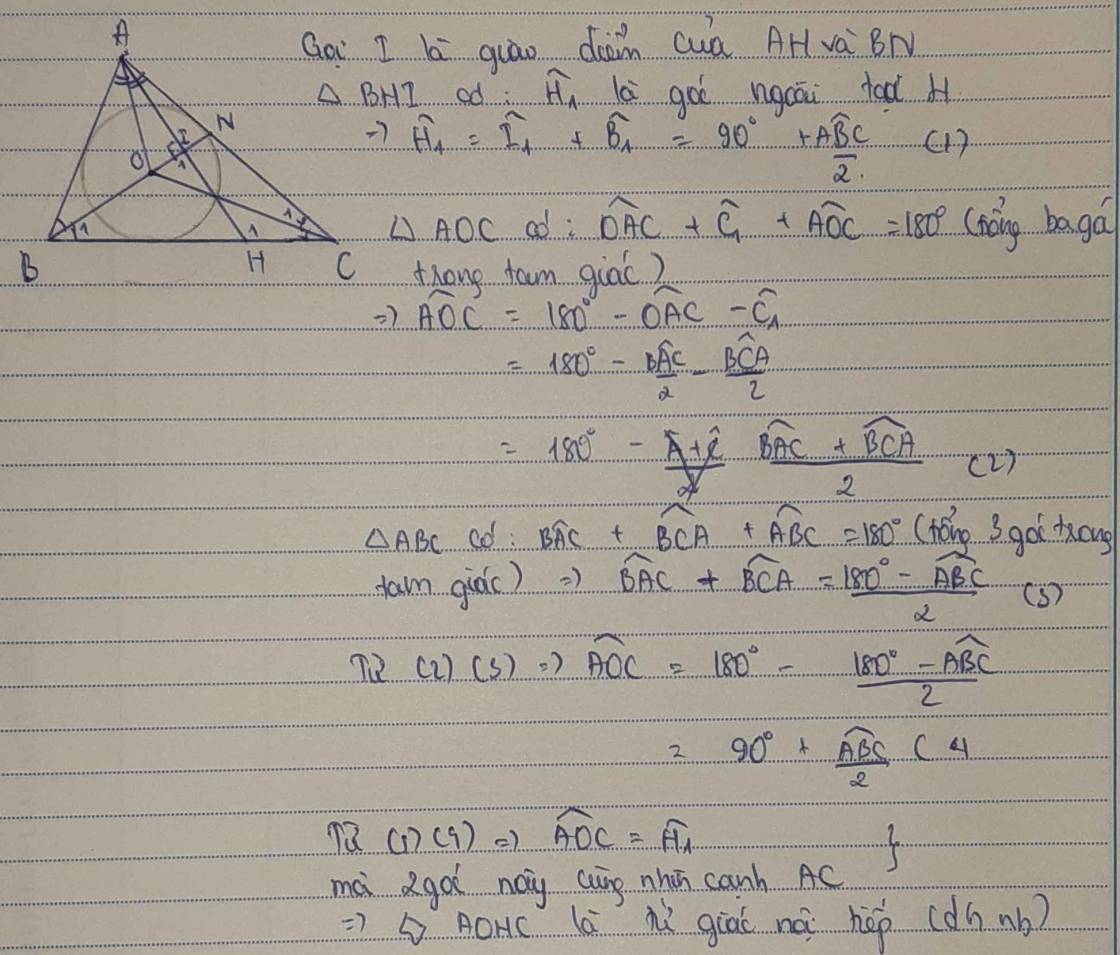 Gọi I là giao điểm của AH và BN
△ BHI có : Ĥ₁ là góc ngoài tại H
=> Ĥ₁ = Î₁ + B̂₁ = 90° + ABC/2 (1)
△ AOC có : OAC + Ĉ₁ + AOC = 180° (tổng ba gó
trong tam giác)
=> AOC = 180° - OAC - Ĉ₁
= 180° - BAC/2 - BCA/2
= 180° - (BAC + BCA)/2 (2)
△ABC có : BAC + BCA + ABC = 180° (tổng 3 góc trong
tam giác) => BAC + BCA = (180° - ABC)/2 (3)
Từ (2) (3) => AOC = 180° - (180° - ABC)/2
= 90° + ABC/2 ( 4
Từ (1) (4) => AOC = Ĥ₁ }
mà 2 góc này cùng nhìn cạnh AC
=> ◊ AOHC là tứ giác nội tiếp (dh nb)
A
N
I
1
O
1
1
1
B
H
C